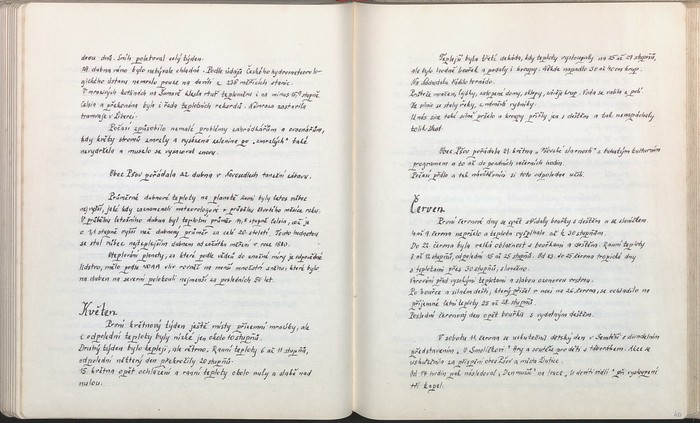 dvou dnů. Sníh poletoval celý týden.
19. dubna ráno bylo nebývale chladno. Podle údajů Českého hydrometeorolo-
gického ústavu nemrzlo pouze na devíti z 236 měřicích stanic.
V mrazových kotlinách na Šumavě klesla rtuť teploměru i na minus stupně
Celsia a překonána byla i řada teplotních rekordů. Námraza zastavila
tramvaje v Liberci.
Počasí způsobilo nemalé problémy zahrádkářům a ovocnářům,
kdy květy stromů zmrzly a vysázená zelenina po „zmrzlých" také
nevydržela a muselo se vysazovat znovu.
Obec Pšov pořádala 22. dubna v Novosedlech taneční zábavu.
Průměrné dubnové teploty na planetě Zemi byly letos vůbec
nejvyšší, jaké kdy zaznamenali meteorologové v průběhu čtvrtého měsíce roku.
V průběhu letošního dubna byl teplotní průměr stupně Celsia, což je
o 1,1 stupně vyšší než dubnový průměr za celé 20. století. Touto hodnotou
se stal vůbec nejteplejším dubnem od začátku měření v roce 1880.
Oteplování planety, za které podle vědců do značné míry je odpovědné
lidstvo, mělo podle NOAA vliv rovněž na menší množství sněhu, které bylo
na duben na severní polokouli nejmenší za posledních 50 let.
Květen
První květnový týden ještě místy přízemní mrazíky, ale
i odpolední teploty byly nízké jen okolo 10 stupňů.
Druhý týden bylo tepleji, ale větrno. Ranní teploty 6 až 11 stupňů,
odpolední některý den překročily 20 stupňů.
15. května opět ochlazení a ranní teploty okolo nuly a slabě nad
nulou.
Teplejší byla třetí dekáda, kdy teploty vystoupaly na 25 až 29 stupňů,
ale bylo hodně bouřek a padaly i kroupy. Někde napadlo 30 až 40 cm krup.
Na řádilo tornádo.
Potrhalo
Ze silnic se staly řeky, z náměstí rybníky.
U nás sice také silně pršelo a kroupy přišly jen s deštěm a tak nenapáchaly
tolik škod.
Obec Pšov pořádala 21. května „ slavnosti" s bohatým kulturním
programem a to až do pozdních večerních hodin.
Počasí přálo a tak návštěvníci si toto odpoledne užili.
Červen
První červnové dny se opět střídaly bouřky s deštěm a se sluníčkem.
4. až 9. června nepršelo a teploty vyšplhaly až k 30 stupňům.
Do 22. června byla velká oblačnost s bouřkami a deštěm. Ranní teploty
8 až 12 stupňů, odpolední 15 až 25 stupňů. Od 23. do 25. června tropické dny
s teplotami přes 30 stupňů, slunečno.
Varování před vysokými teplotami a slabou ozonovou vrstvou.
Po bouřce a silném dešti, který přišel v noci na 26. června, se ochladilo na
příjemné letní teploty 25 až 28 stupňů.
Poslední červnový den opět bouřka s vydatným deštěm.
V sobotu 11. června se uskutečnil dětský den v Semtěši s divadelním
představením „O Smolíčkovi". Hry a soutěže pro děti s táborákem. Akce se
uskutečnila za přispění obce Pšov a města Žlutice.
Od 14 hodin pak následoval „Den " na louce „U devíti vidlí" při vystoupení
tří kapel.